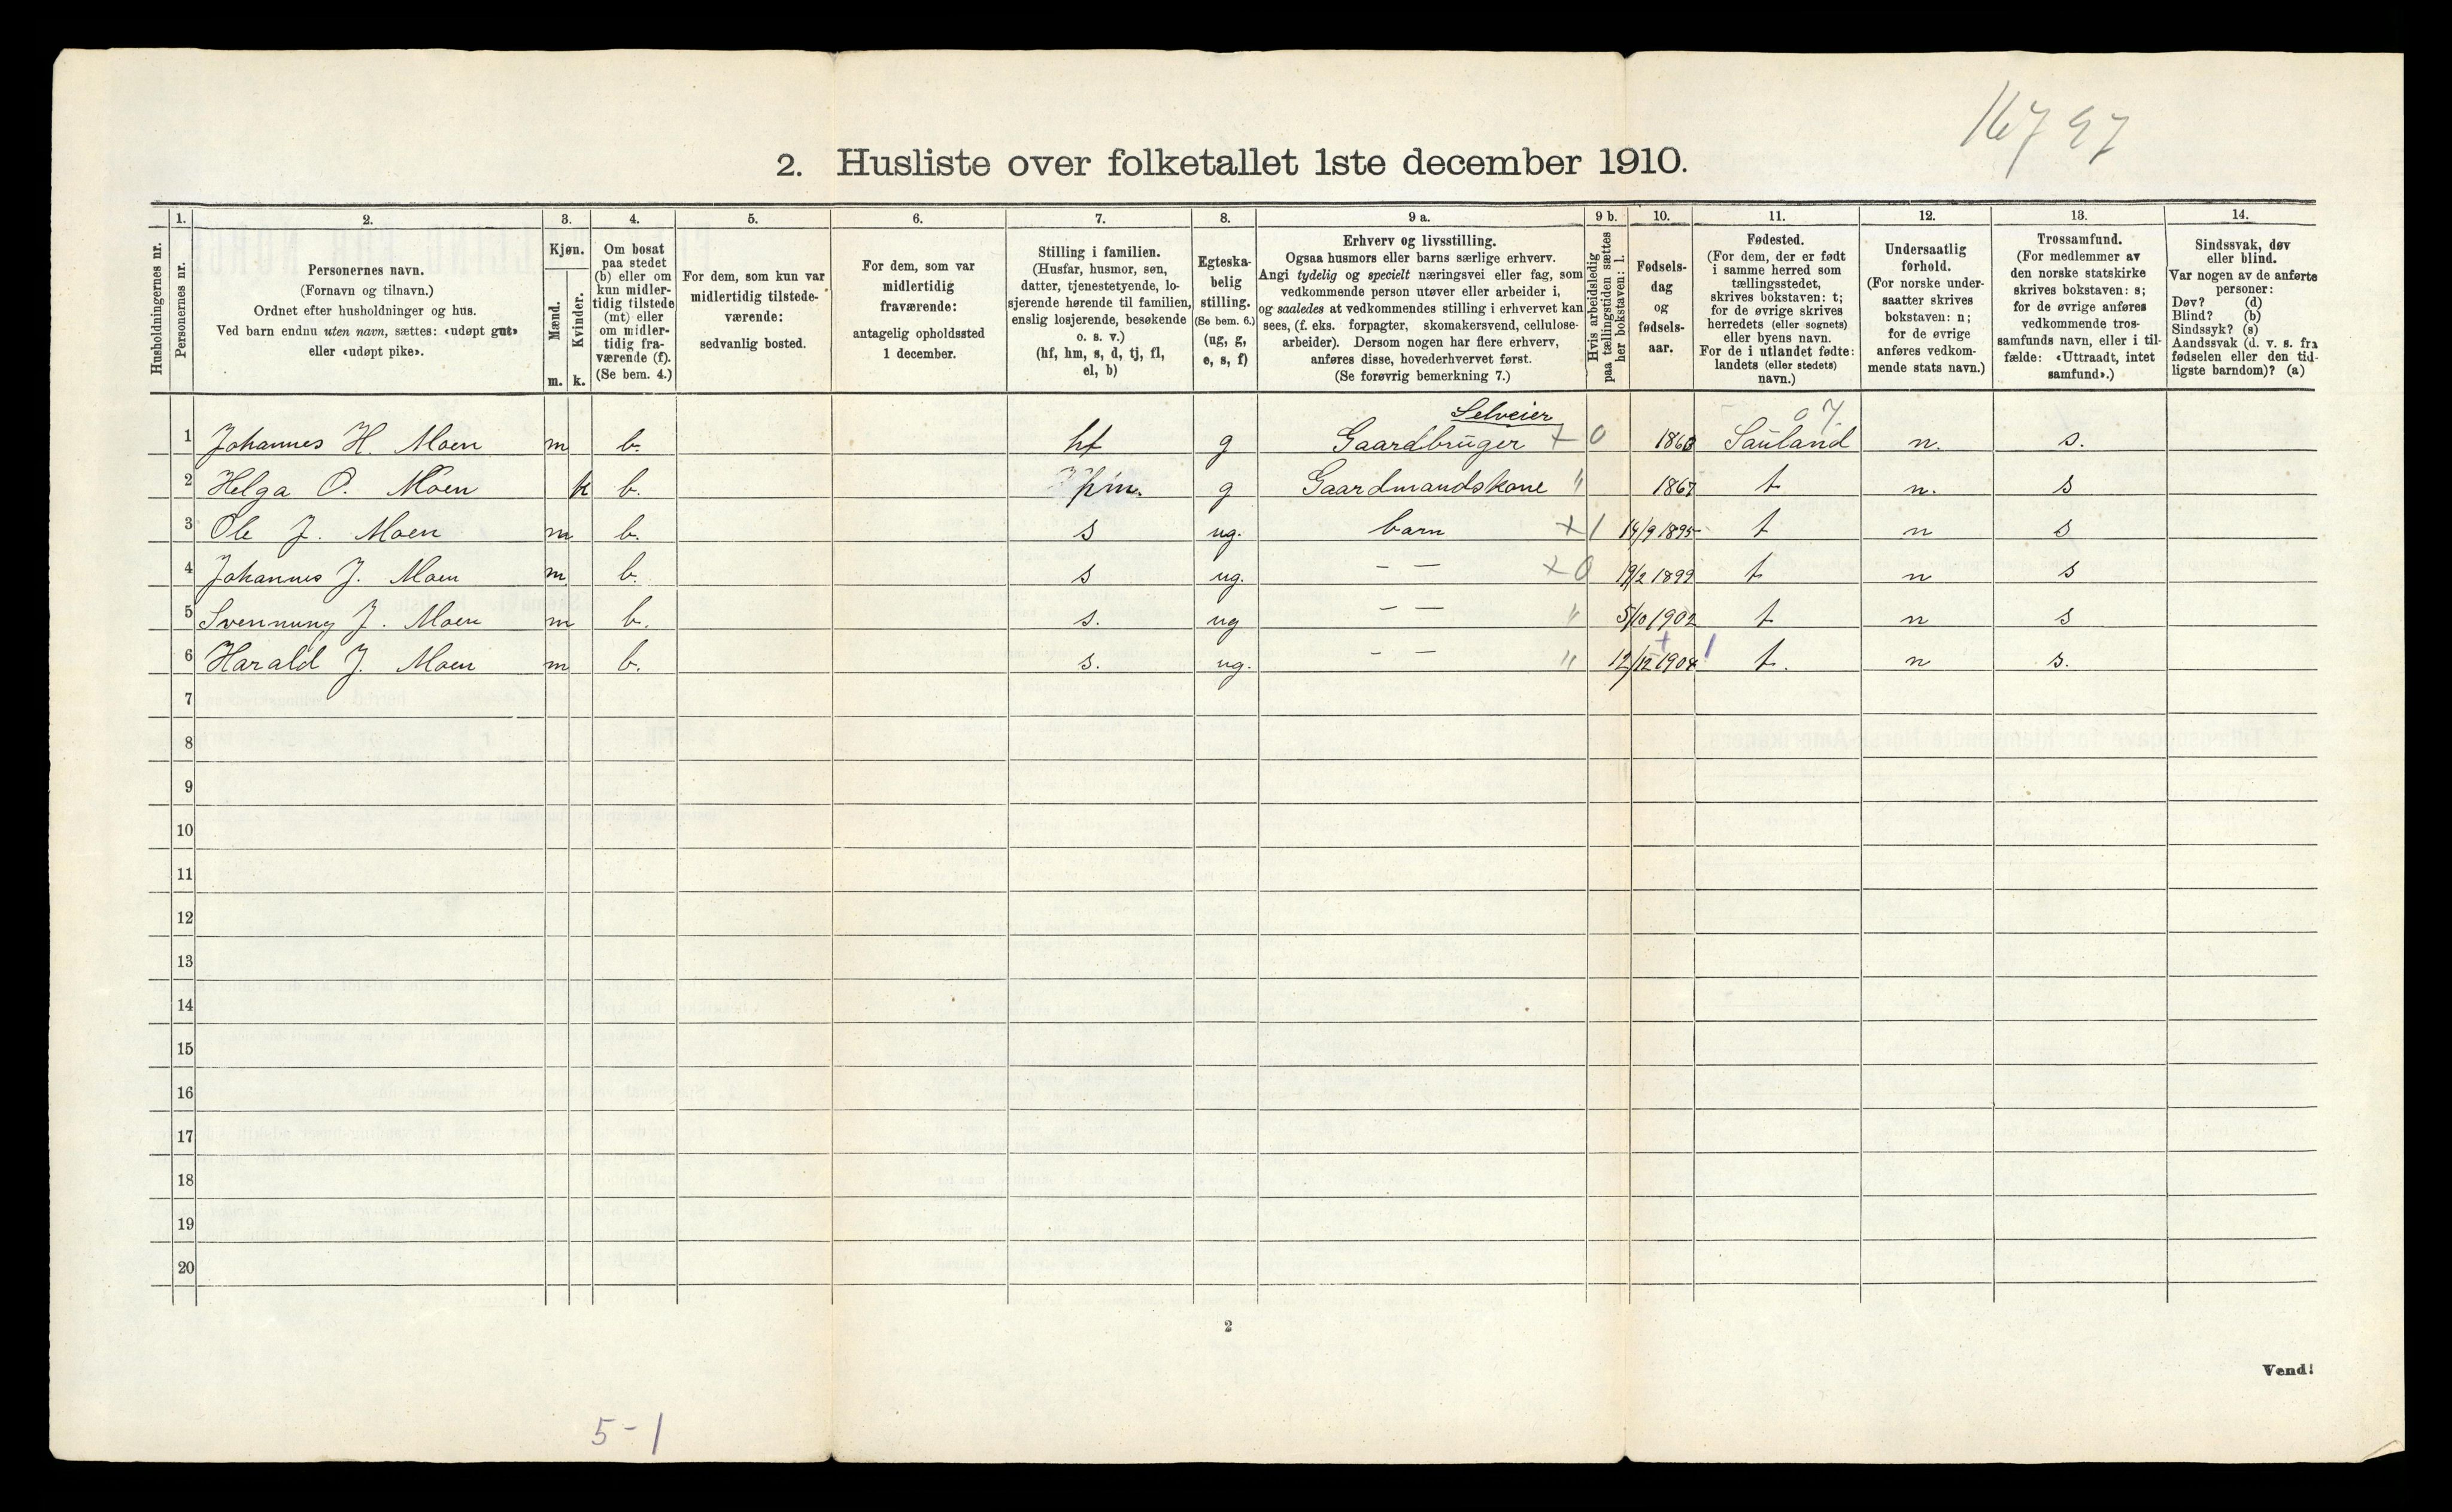 16797
2. Husliste over folketallet 1ste december 1910.
Husholdningernes nr.
1.
Personernes nr.
2.
Personernes navn.
(Fornavn og tilnavn.)
Ordnet efter husholdninger og hus.
Ved barn endnu uten navn, sættes: «udøpt gut»
eller «udøpt pike».
3.
Kjøn.
Mænd.
m.
Kvinder.
k.
4.
Om bosat
paa stedet
(b) eller om
kun midler-
tidig tilstede
(mt) eller
om midler-
tidig fra-
værende (f).
(Se bem. 4.)
5.
For dem, som kun var
midlertidig tilstede-
værende:
sedvanlig bosted.
6.
For dem, som var
midlertidig
fraværende:
antagelig opholdssted
1 december.
7.
Stilling i familien.
(Husfar, husmor, søn,
datter, tjenestetyende, lo-
sjerende hørende til familien,
enslig losjerende, besøkende
o. s. v.)
(hf, hm, s, d, tj, fl,
el, b)
8.
Egteska-
belig
stilling.
(Se bem. 6.)
(ug, g,
e, s, f)
9 a.
Erhverv og livsstilling.
Ogsaa husmors eller barns særlige erhverv.
Angi tydelig og specielt næringsvei eller fag, som
vedkommende person utøver eller arbeider i,
og saaledes at vedkommendes stilling i erhvervet kan
sees, (f. eks. forpagter, skomakersvend, cellulose-
arbeider). Dersom nogen har flere erhverv,
anføres disse, hovederhvervet først.
(Se forøvrig bemerkning 7.)
9 b.
Hvis arbeidsledig
paa tællingstiden sættes
her bokstaven: l.
10.
Fødsels-
dag
og
fødsels-
aar.
11.
Fødested.
(For dem, der er født
i samme herred som
tællingsstedet,
skrives bokstaven: t;
for de øvrige skrives
herredets (eller sognets)
eller byens navn.
For de i utlandet fødte:
landets (eller stedets)
navn.)
12.
Undersaatlig
forhold.
(For norske under-
saatter skrives
bokstaven: n;
for de øvrige
anføres vedkom-
mende stats navn.)
13.
Trossamfund.
(For medlemmer av
den norske statskirke
skrives bokstaven: s;
for de øvrige anføres
vedkommende tros-
samfunds navn, eller i til-
fælde: «Uttraadt, intet
samfund».)
14.
Sindssvak, døv
eller blind.
Var nogen av de anførte
personer:
Døv? (d)
Blind? (b)
Sindssyk? (s)
Aandssvak (d. v. s. fra
fødselen eller den tid-
ligste barndom)? (a)
Selveier 07
1 Johannes H. Moen m b. hf g Gaardbruger + 0 1863 Sauland n. s.
2 Helga O. Moen k b. hm. g Gaardmandskone " 1867 t n. s
3 Ole J. Moen m b. s ug. barn + 1 14/9 1895 t n s
4 Johannes J. Moen m b. s ug. — — + 0 19/2 1899 t n s
5 Svennung J. Moen m b. s. ug — — " 5/10 1902 t n s
6 Harald J. Moen m b. s. ug. — — " 12/12 1904 + 1 t. n s.
7
8
9
10
11
12
13
14
15
16
17
18
19
20
2
Vend!
5-1